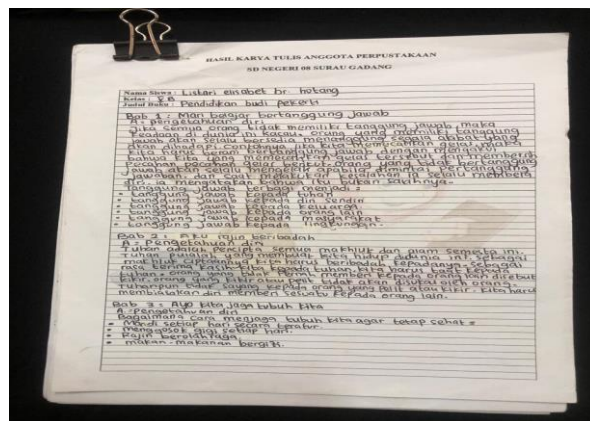 HASIL KARYA TULIS ANGGOTA PERPUSTAKAAN
SD NEGERI 08 SURAU GADANG
Nama Siswa : Listari elisabet br. hotang
Kelas : 5B
Judul Buku : Pendidikan budi pekerti
Bab 1 : Mari belajar bertanggung jawab
A = pengetahuan diri
Jika semua orang tidak memiliki tanggung jawab, maka
keadaan di dunia ini kacau. orang yang memiliki tanggung
jawab akan selalu bersedia menanggung segala akibat yang
akan dihadapi. contohnya, jika kita memecahkan gelas, maka
kita harus berani bertanggung jawab dengan mengatakan
bahwa kita yang memecahkan gelas tersebut dan membersih
pecahan pecahan gelas berikut. orang yang tidak bertanggung
jawab akan selalu mengelak apabila diminta pertanggung
jawaban. dari melakukan kesalahan ia selalu membela
diri. ia mengatakan bahwa itu bukan salahnya.
Tanggung jawab terbagi menjadi :
• tanggung jawab kepada tuhan
• tanggung jawab kepada diri sendiri
• tanggung jawab kepada keluarga.
• tanggung jawab kepada orang lain
• tanggung jawab kepada masyarakat
• tanggung jawab kepada lingkungan.
Bab 2 : Aku rajin beribadah
A = Pengetahuan diri
Tuhan adalah pencipta semua makhluk dan alam semesta ini.
Tuhan pulalah yang membuat kita hidup didunia ini sebagai
makhluk ciptaannya kita harus beribadah kepadanya sebagai
rasa terima kasih kita kepada tuhan. kita harus taat kepada
tuhan. orang yang tidak pernah memberi kepada orang lain disebut
kikir. orang yang kikir atau pelit tidak akan disukai oleh orang.
Tuhanpun tidak sayang kepada orang yang pelit atau kikir. Kita harus
membiasakan diri memberi sesuatu kepada orang lain.
Bab 3 : Ayo kita jaga tubuh kita
A = pengetahuan diri
Bagaimana cara menjaga tubuh kita agar tetap sehat =
• Mandi setiap hari secara teratur.
• menggosok gigi setiap hari.
• Rajin berolahraga.
• makan-makanan bergizi.